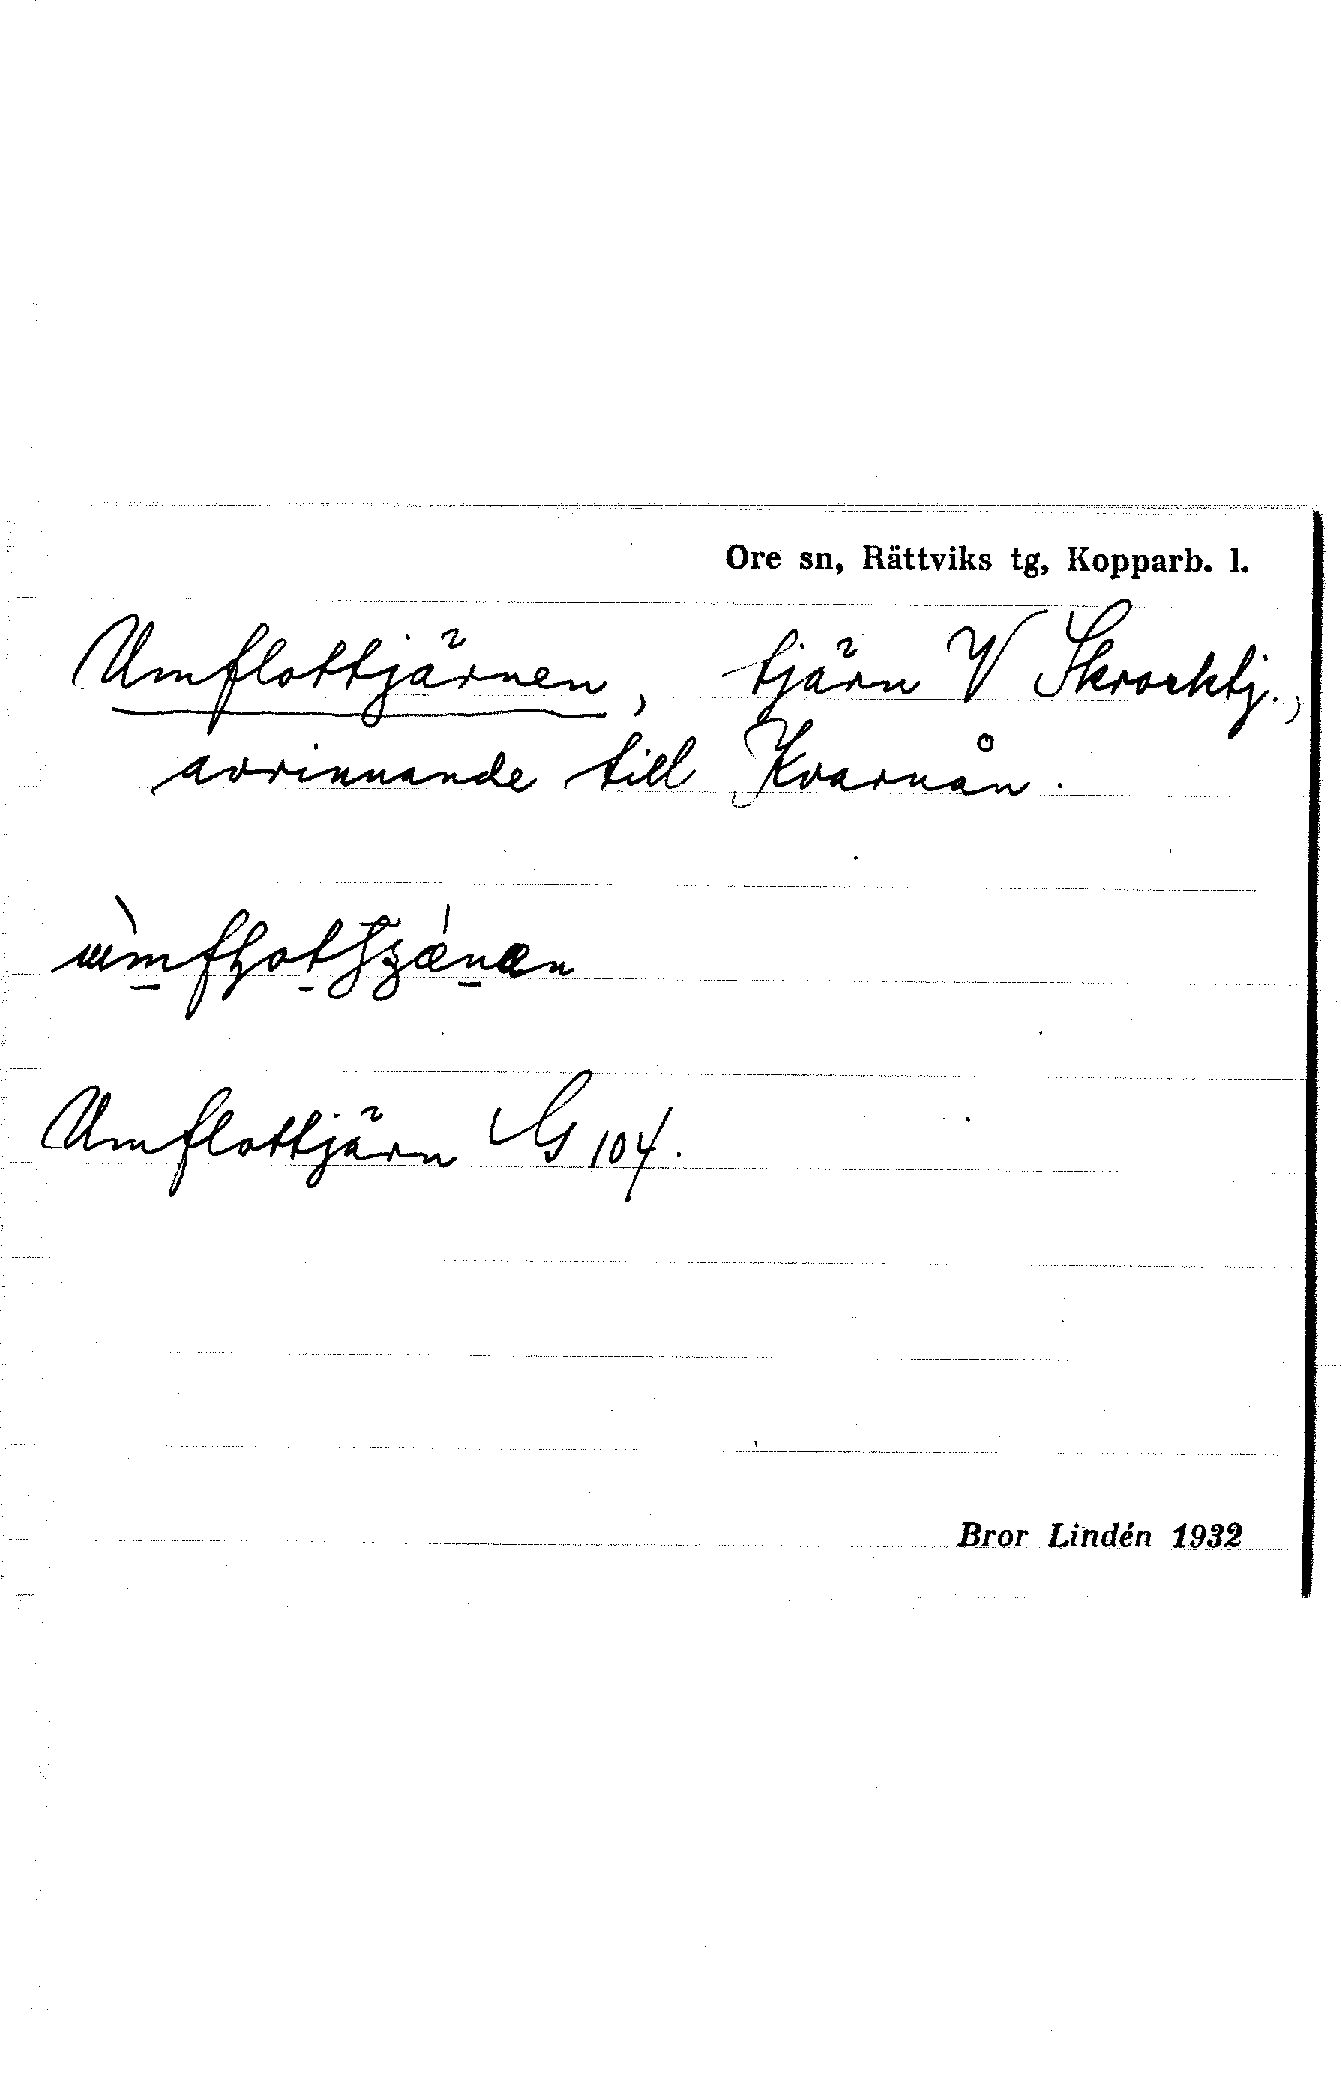 Ore sn, Rättviks tg, Kopparb. l.
Umflottjärnen, tjärn V Skrocktj.,
avrinnande till Kvarnån.
Umflottjärn G 104.
Bror Lindén 1932